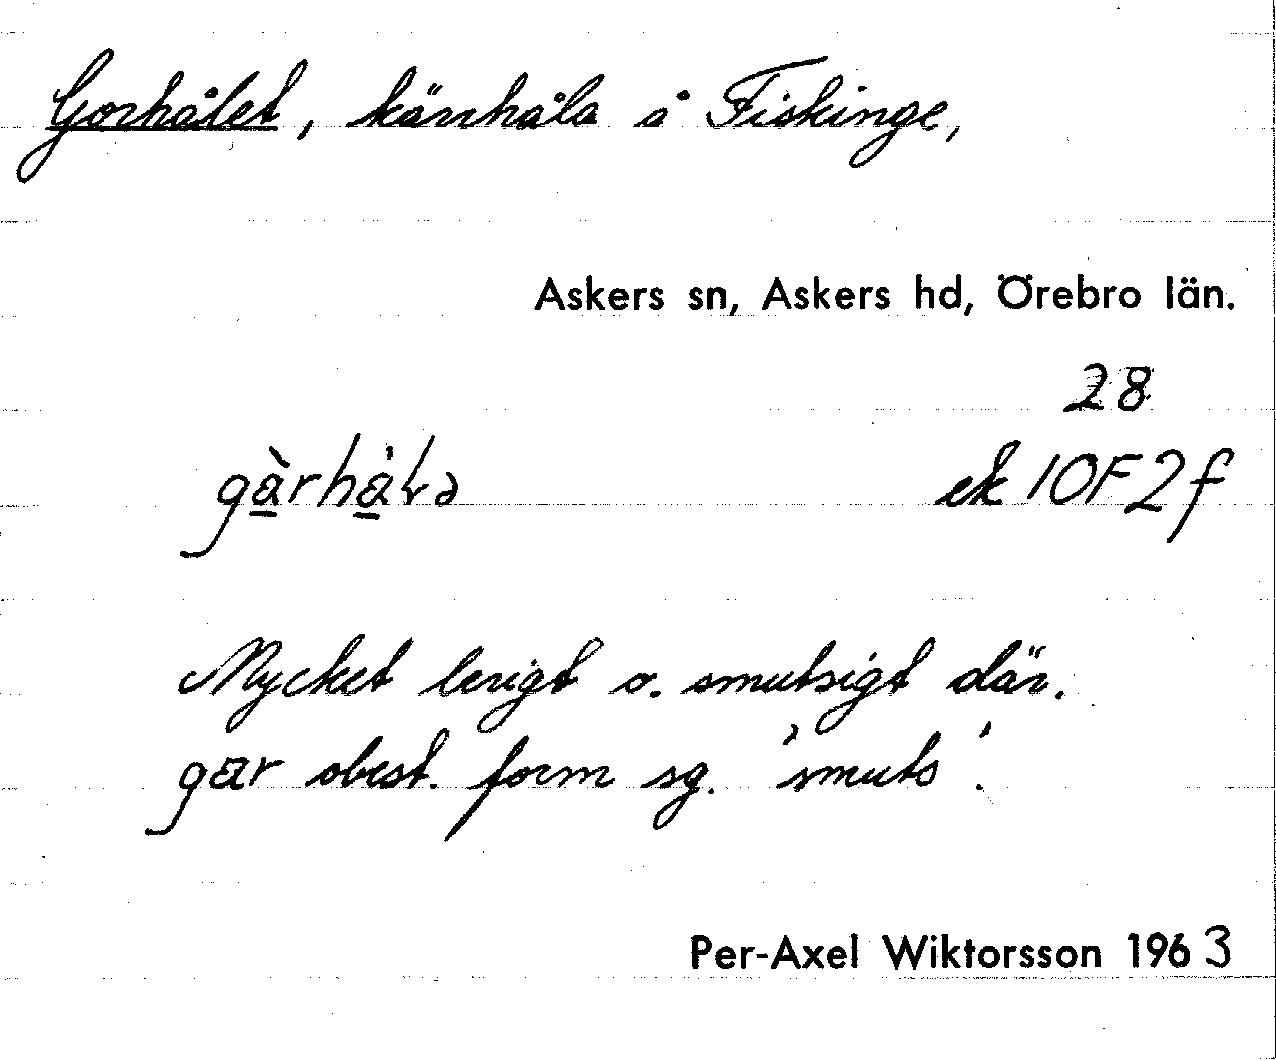 Gorhålet, kärrhåla å Fiskinge,
Askers sn, Askers hd, Örebro län.
28
gàrhálə ek 10F2f
Mycket lerigt o. smutsigt där.
gar obest. form sg. 'smuts'.
Per-Axel Wiktorsson 1963